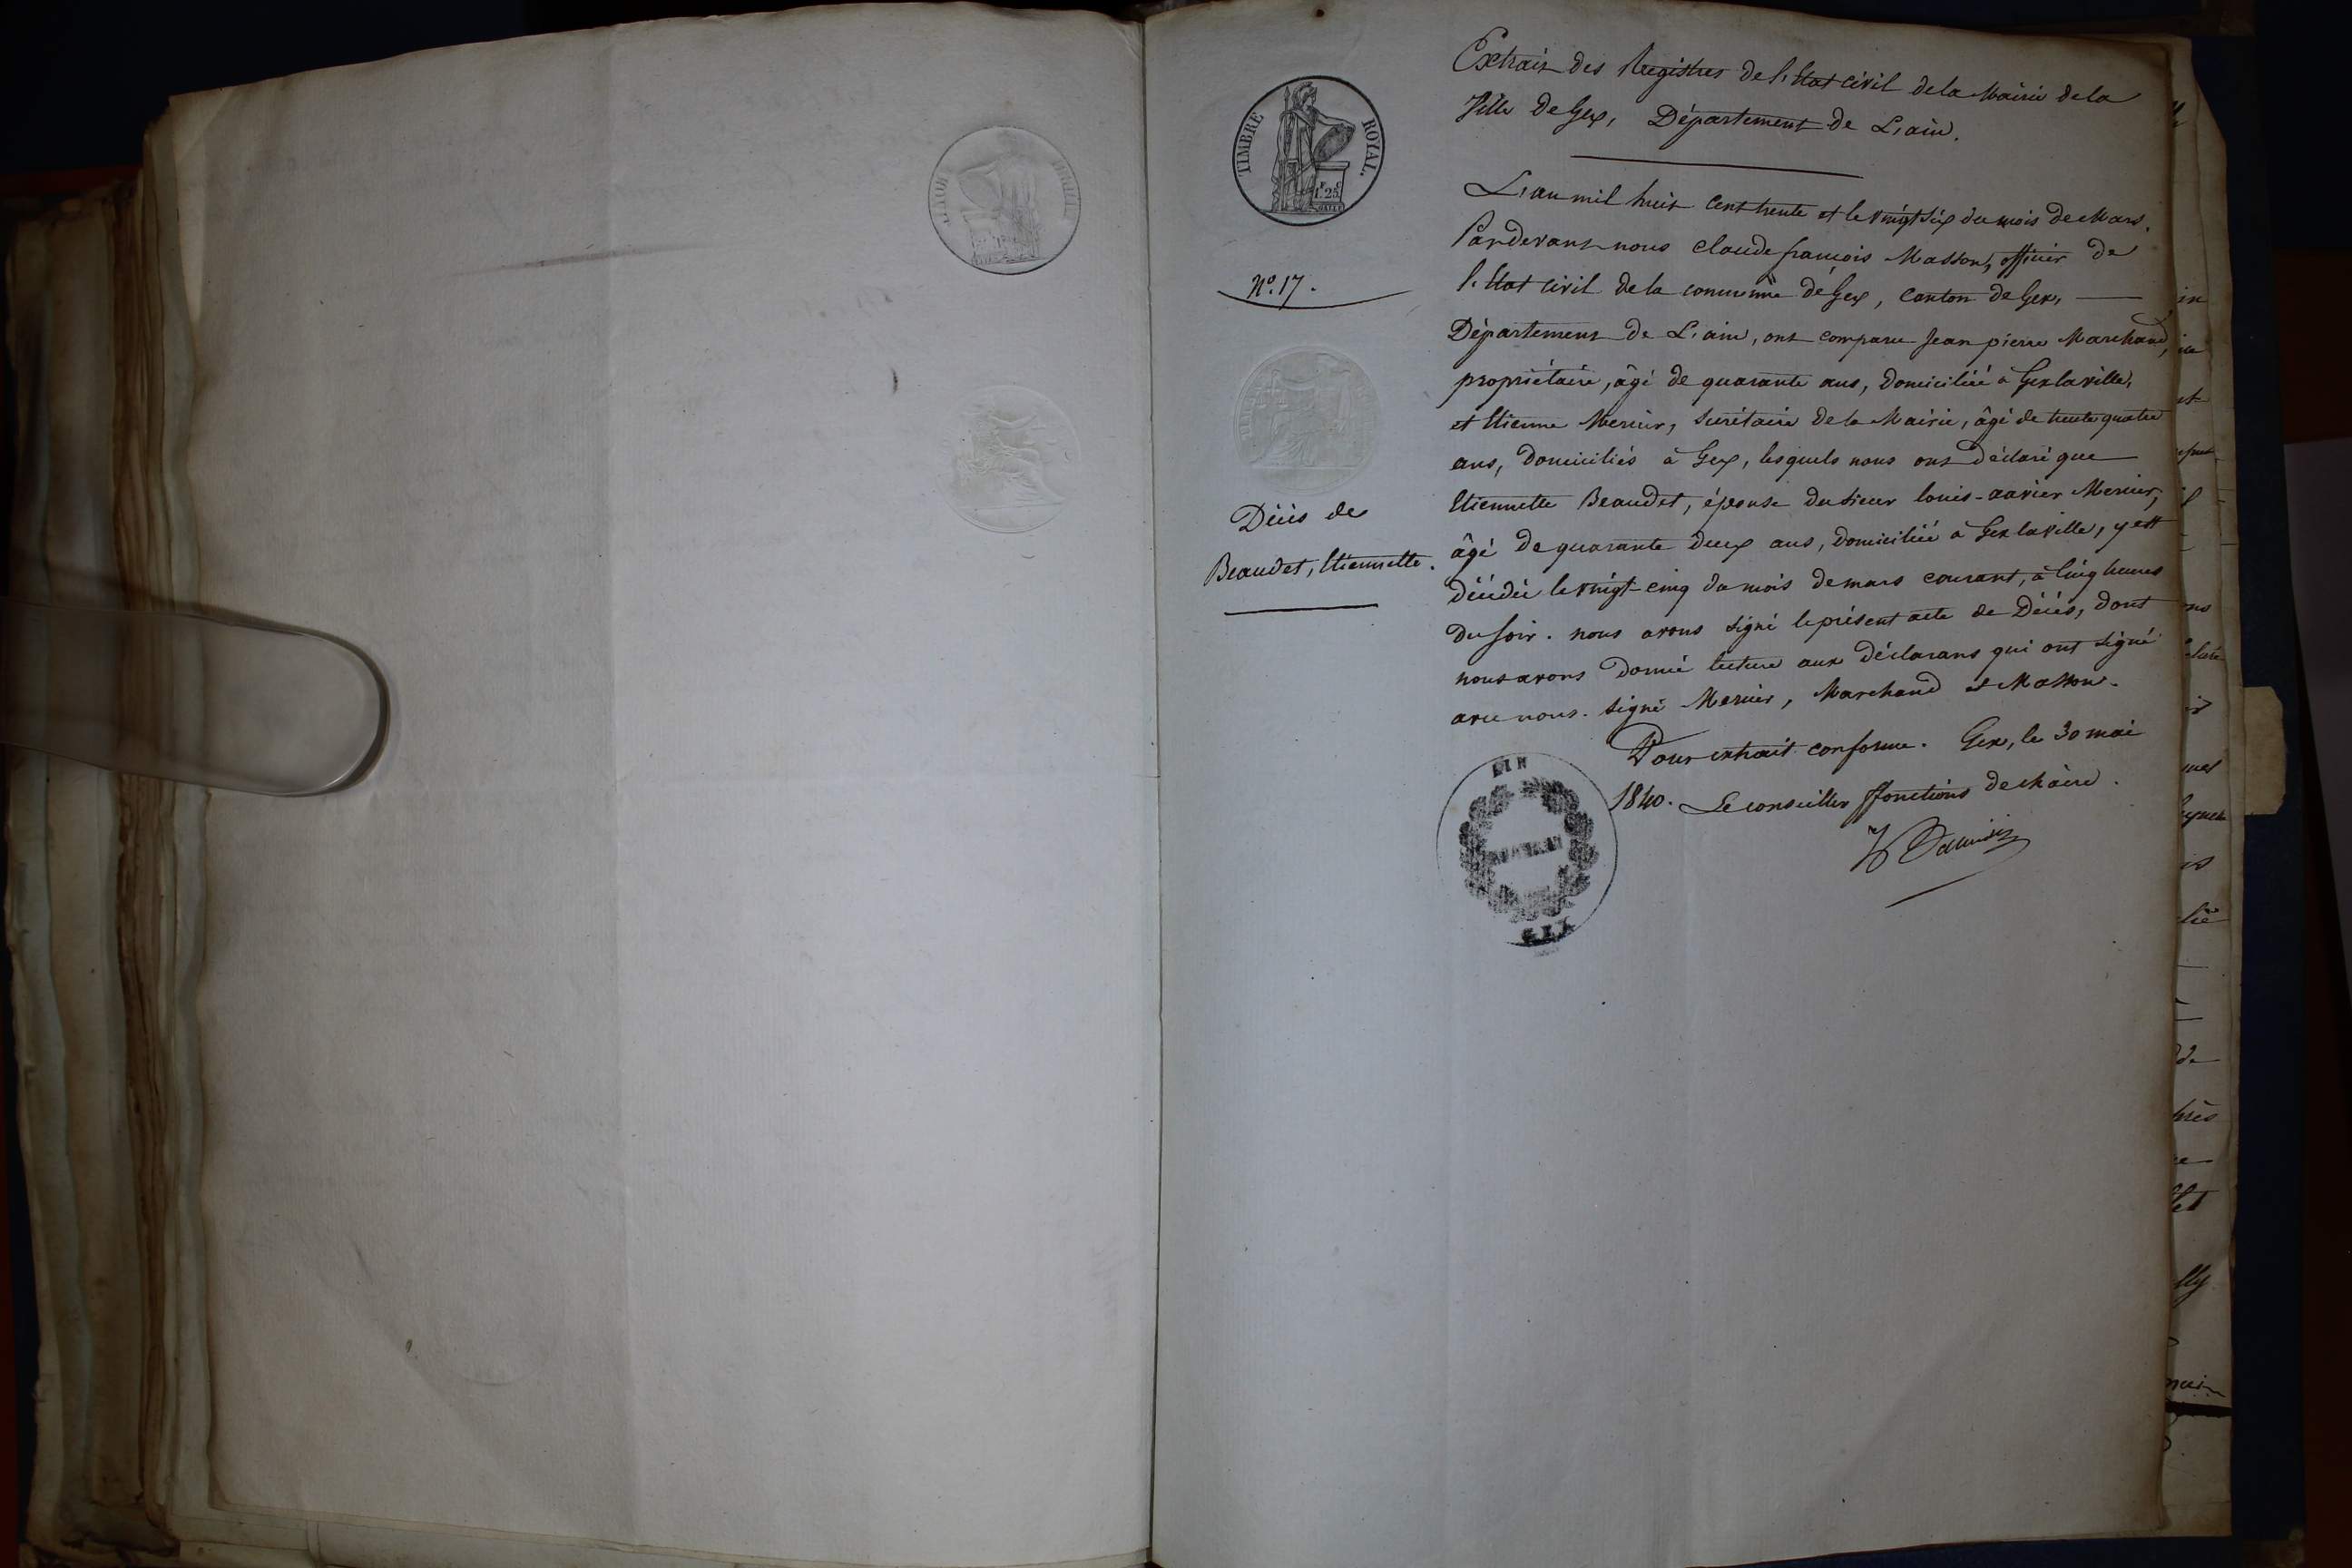 TIMBRE ROYAL.
1.F 25C
Nº. 17.
Décès de
Beaudet, Etiennette.
Extrait des Registres de l'Etat civil de la Mairie de la
Ville de Gex, Département de L'ain.
L'an mil huit cent trente et le vingt six du mois de Mars.
Pardevant nous Claude françois Masson, officier de
l'Etat civil de la commune de Gex, Canton de Gex,
Département de L'ain, ont comparu Jean pierre Marchand,
propriétaire, âgé de quarante ans, domicilié à Gex la ville,
et Etienne Mercier, Secrétaire de la Mairie, âgé de trente quatre
ans, domiciliés à Gex, lesquels nous ont déclaré que
Etiennette Beaudet, épouse du sieur louis-xavier Mercier,
âgé de quarante deux ans, domiciliée à Gex la ville, y est
décédée le vingt-cinq du mois de mars courant, à Cinq heures
du soir. nous avons signé le présent acte de Décès, dont
nous avons donné lecture aux déclarans qui ont signé
avec nous. signé Mercier, Marchand et Masson.
Pour extrait conforme. Gex, le 30 mai
1840. Le conseiller ffonctions de Maire.
GEX